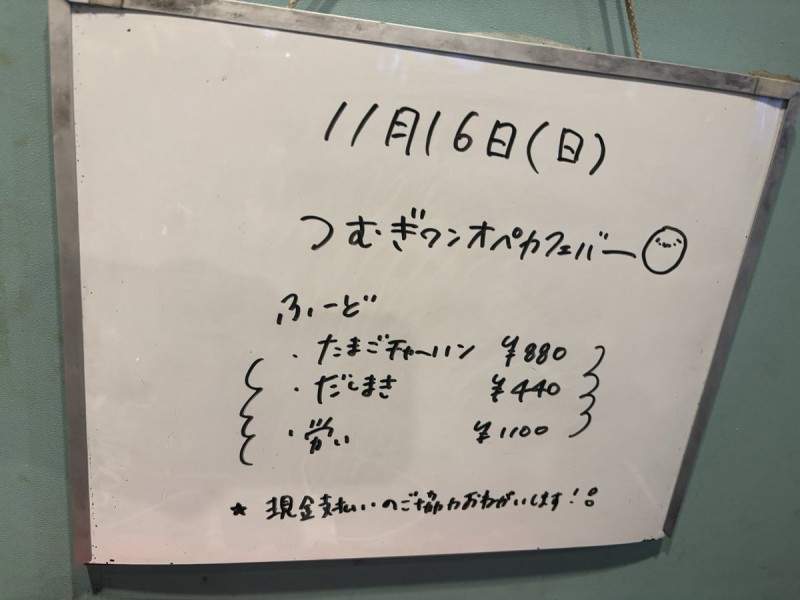 11月16日(日)
つむぎワンオペカフェバー
ふーど
・たまごチャーハン ¥880
・だしまき ¥440
・労い ¥1100
★ 現金支払いのご協力おねがいします!!